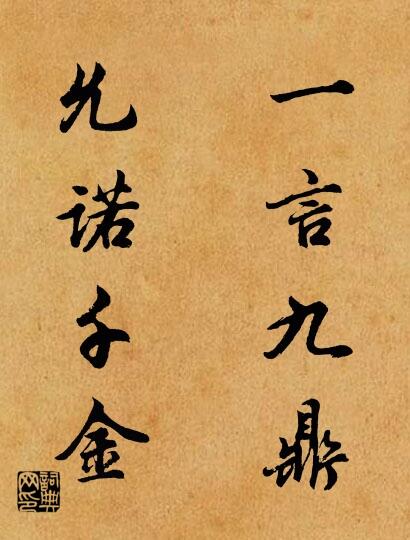 一言九鼎
允诺千金
詞典网印